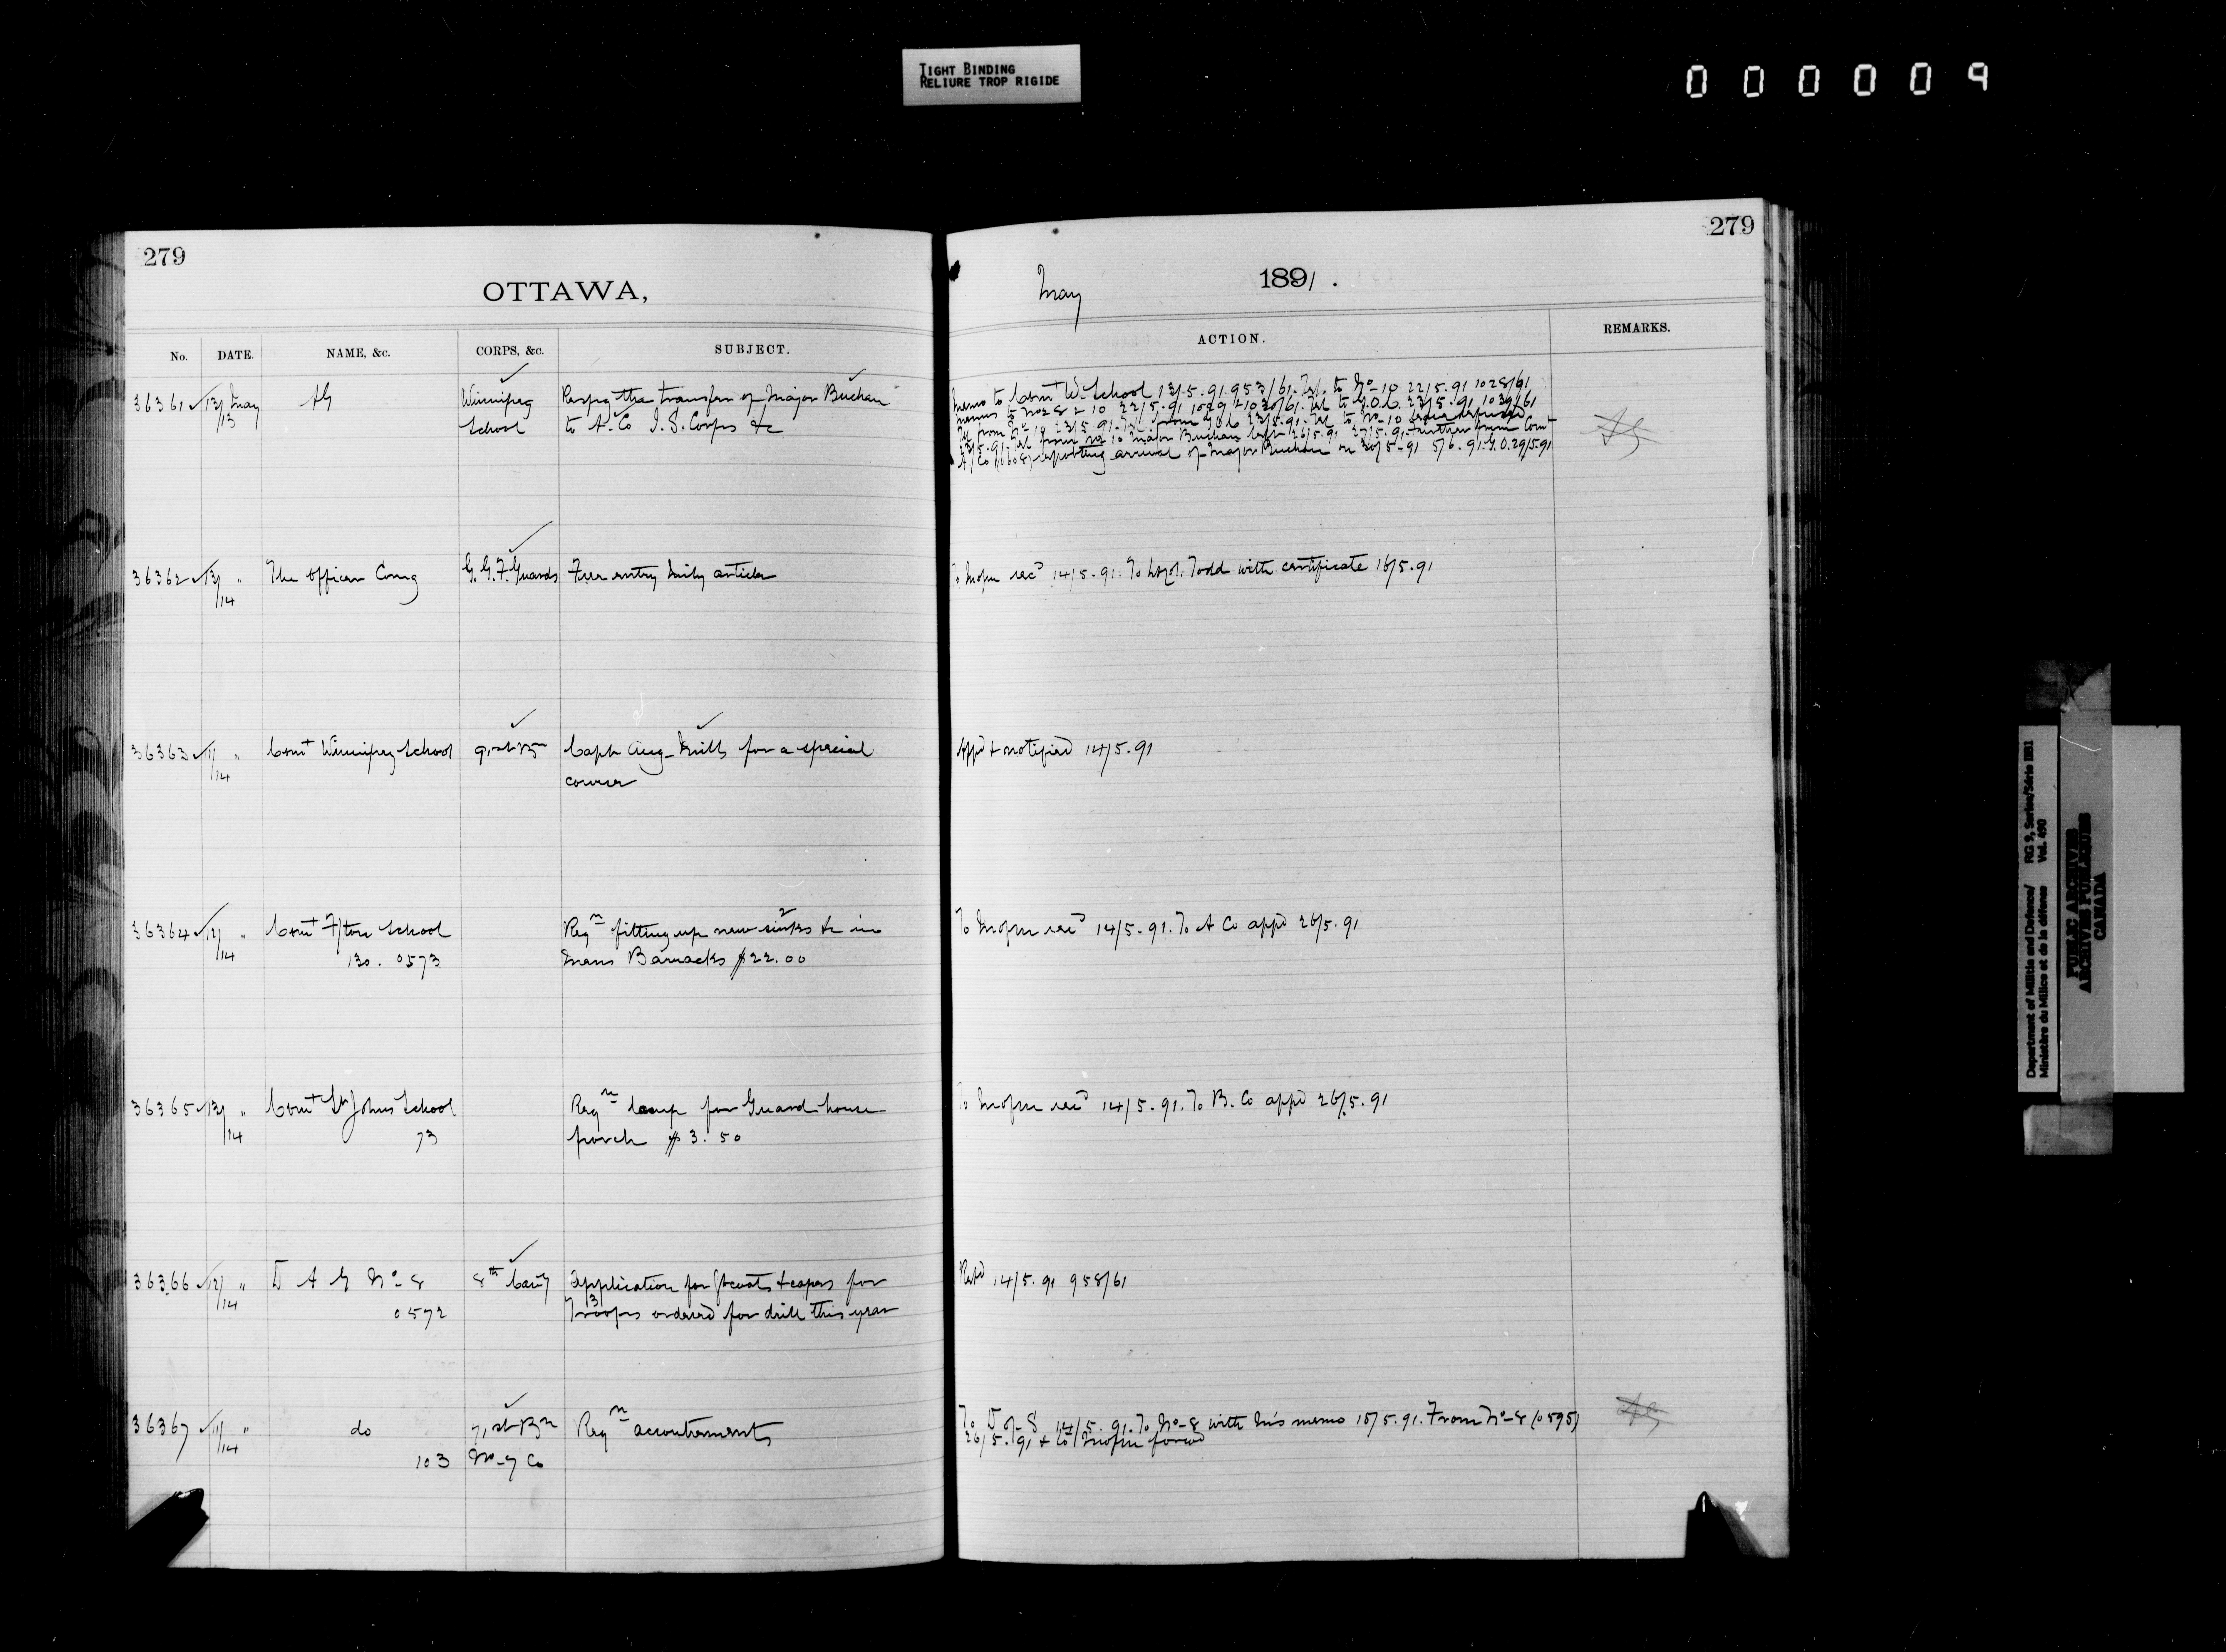 TIGHT BINDING
RELIURE TROP RIGIDE
000009
279
OTTAWA,
No. DATE. NAME, &c. CORPS, &c. SUBJECT.
36361 13/ May AG Winnipeg Respg the transfer of Major Buchan
13 School to A. Co I. S. Corps &c
36362 13/ " The Officer Comg G. G. F. Guards Free entry articles
/14
36363 11/ " Comt Winnipeg School 91st Bn Capt Aug. Mills for a special
/14 course
36364 12/ " Comt F/ton School Reqn fitting up new sinks &c in
/14 130. 0573 mens Barracks $22.00
36365 13/ " Comt St Johns School Reqn lamp for Guard house
/14 73 porch $3.50
36366 12/ " D A G No- 8 8th Cavy Application for Gtcoats & capes for
/14 0572 3 Troops ordered for drill this year
36367 11/ " do 71st Bn Reqn accoutrements
/14 103 No-7 Co
279
May 1891.
ACTION. REMARKS.
Memo to Comt W. School 13/5.91. 953/61. Tel. to No-10 22/5.91 1028/61
Memos to Nos 8 & 10 22/5.91 1029 & 1030/61. Tel to G.O.C. 23/5.91 1039/61
Tel from No 10 23/5.91. Tel. from 23/5.91. Tel to No-10
23/5.91. Tel from No 10 Major Buchan left 26/5.91 27/5.91. Further from Comt
A/Co (0608) reporting arrival of Major Buchan on 30/5-91 5/6.91. G.O. 29/5.91
AG
To recd 14/5.91. To Lt Col. Todd with certificate 16/5.91
Appd & notified 14/5.91
To recd 14/5.91. To A Co appd 26/5.91
To recd 14/5.91. To B. Co appd 26/5.91
Retd 14/5.91 958/61
To D of S 14/5.91. To No-8 with his memo 15/5.91. From No-8 (0595)
26/5.91 & to
AG
Department of Militia and Defence/ RG 9, Series/Série II B1
Ministère de Milice et de la défense Vol. 490
PUBLIC ARCHIVES
ARCHIVES PUBLIQUES
CANADA